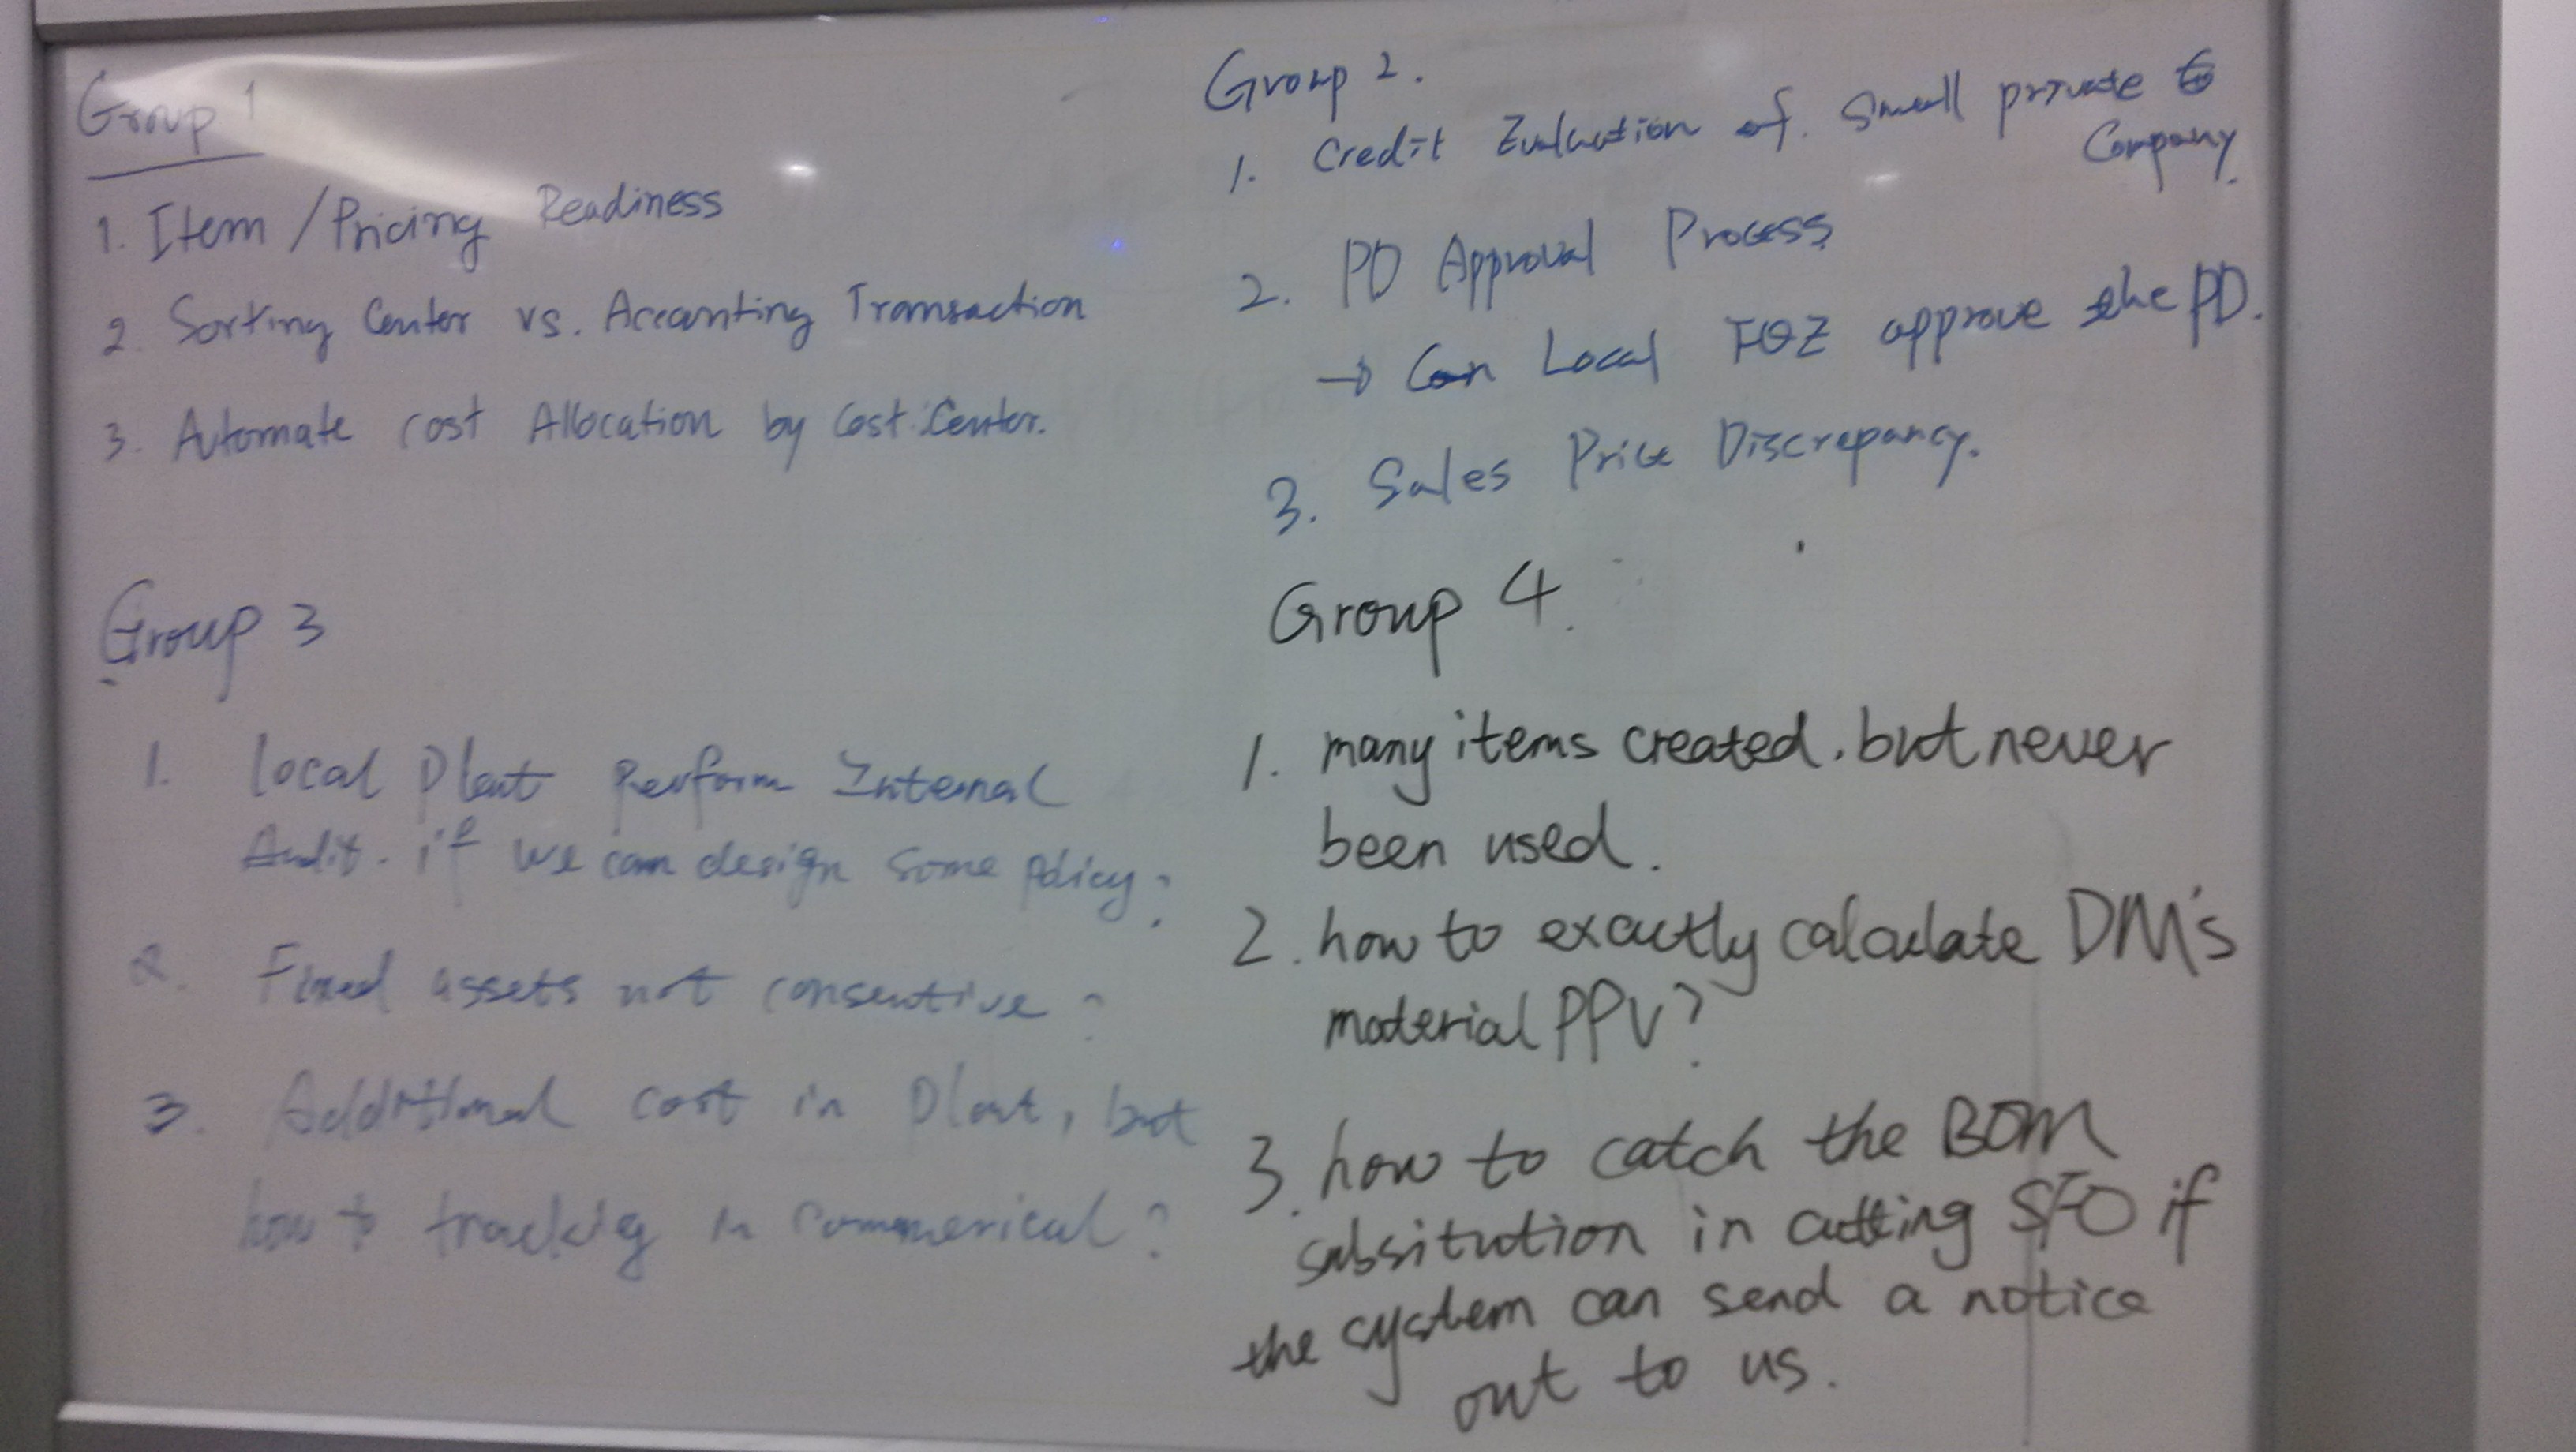 Group 1
1. Item / Pricing Readiness
2. Sorting Center vs. Accounting Transaction
3. Automate cost Allocation by Cost Center.
Group 2.
1. Credit Evaluation of. Small private
Company.
2. PD Approval Process
→ Can Local approve the PD.
3. Sales Price Discrepancy.
Group 3
1. local Plant Perform Internal
Audit. if we can design some policy?
2. Fixed assets not consentive?
3. Additional cost in Plant, but
how to trackig in commerical?
Group 4.
1. many items created. but never
been used.
2. how to exactly calculate DM's
material PPV?
3. how to catch the BOM
subsitution in cutting SFO if
the system can send a notice
out to us.